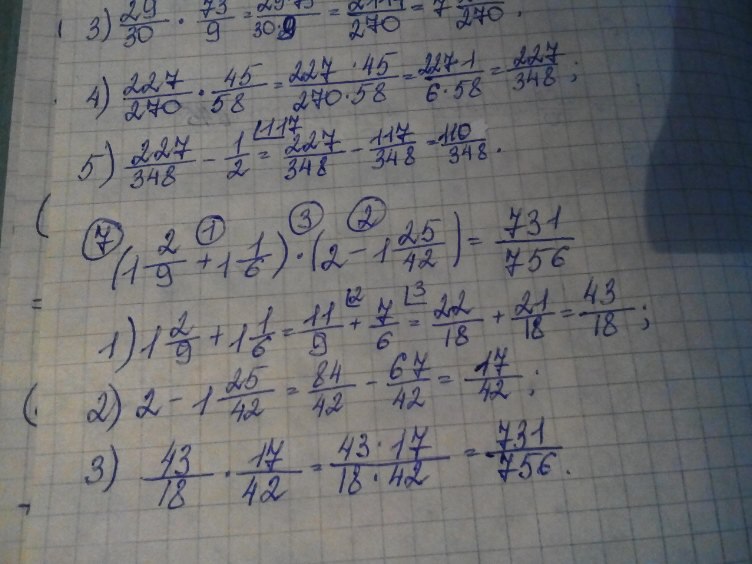 3) 29/30 · 73/9 = 29·73/30·9 = 2117/270 = 7 /270.
4) 227/270 · 45/58 = 227·45/270·58 = 227·1/6·58 = 227/348;
5) 227/348 - 1/2 ⌊117 = 227/348 - 117/348 = 110/348.
⑦ (1 2/9 +① 1 1/6) ·③ (2 -② 1 25/42) = 731/756
1) 1 2/9 + 1 1/6 = 11/9 ⌊2 + 7/6 ⌊3 = 22/18 + 21/18 = 43/18;
2) 2 - 1 25/42 = 84/42 - 67/42 = 17/42;
3) 43/18 · 17/42 = 43·17/18·42 = 731/756.